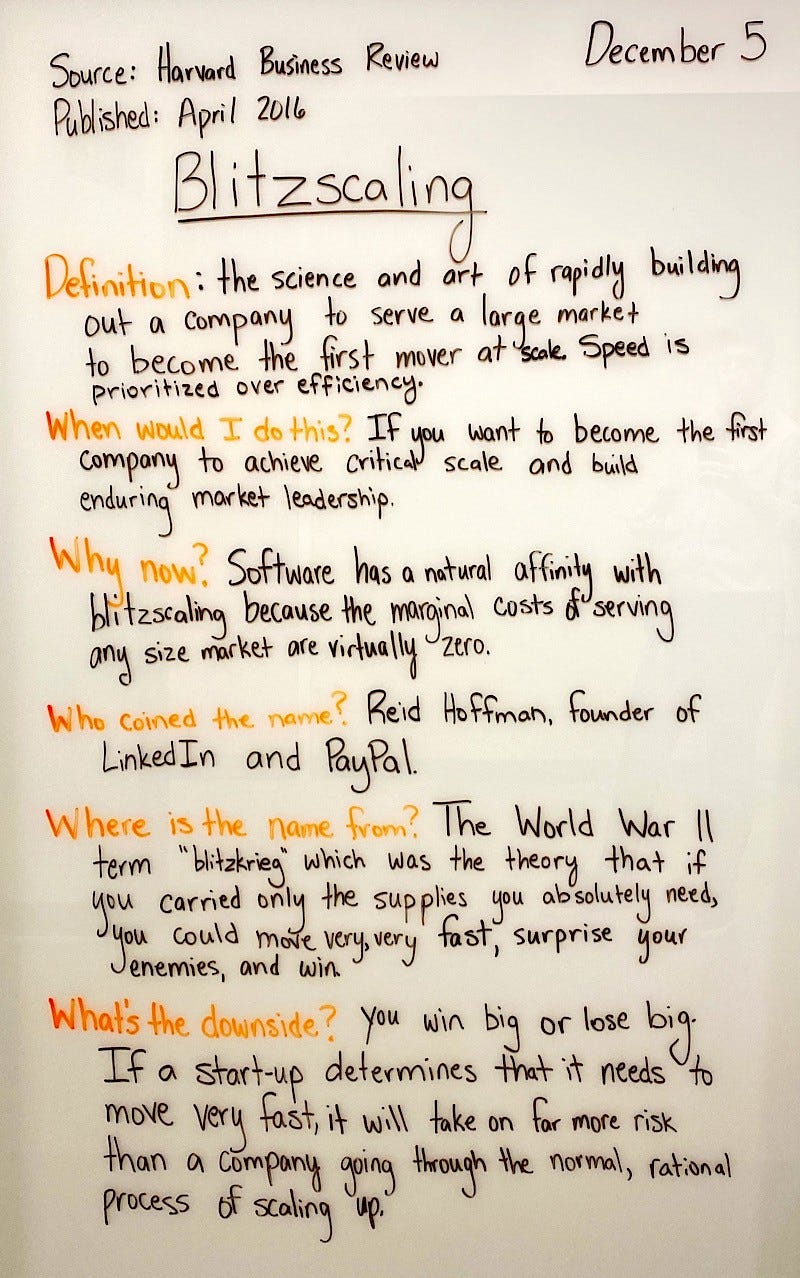 December 5
Source: Harvard Business Review
Published: April 2016
Blitzscaling
Definition: the science and art of rapidly building
out a company to serve a large market
to become the first mover at scale. Speed is
prioritized over efficiency.
When would I do this? If you want to become the first
company to achieve critical scale and build
enduring market leadership.
Why now? Software has a natural affinity with
blitzscaling because the marginal costs of serving
any size market are virtually zero.
Who coined the name? Reid Hoffman, founder of
LinkedIn and PayPal.
Where is the name from? The World War II
term "blitzkrieg" which was the theory that if
you carried only the supplies you absolutely need,
you could move very, very fast, surprise your
enemies, and win.
What's the downside? You win big or lose big.
If a start-up determines that it needs to
move very fast, it will take on far more risk
than a company going through the normal, rational
process of scaling up.